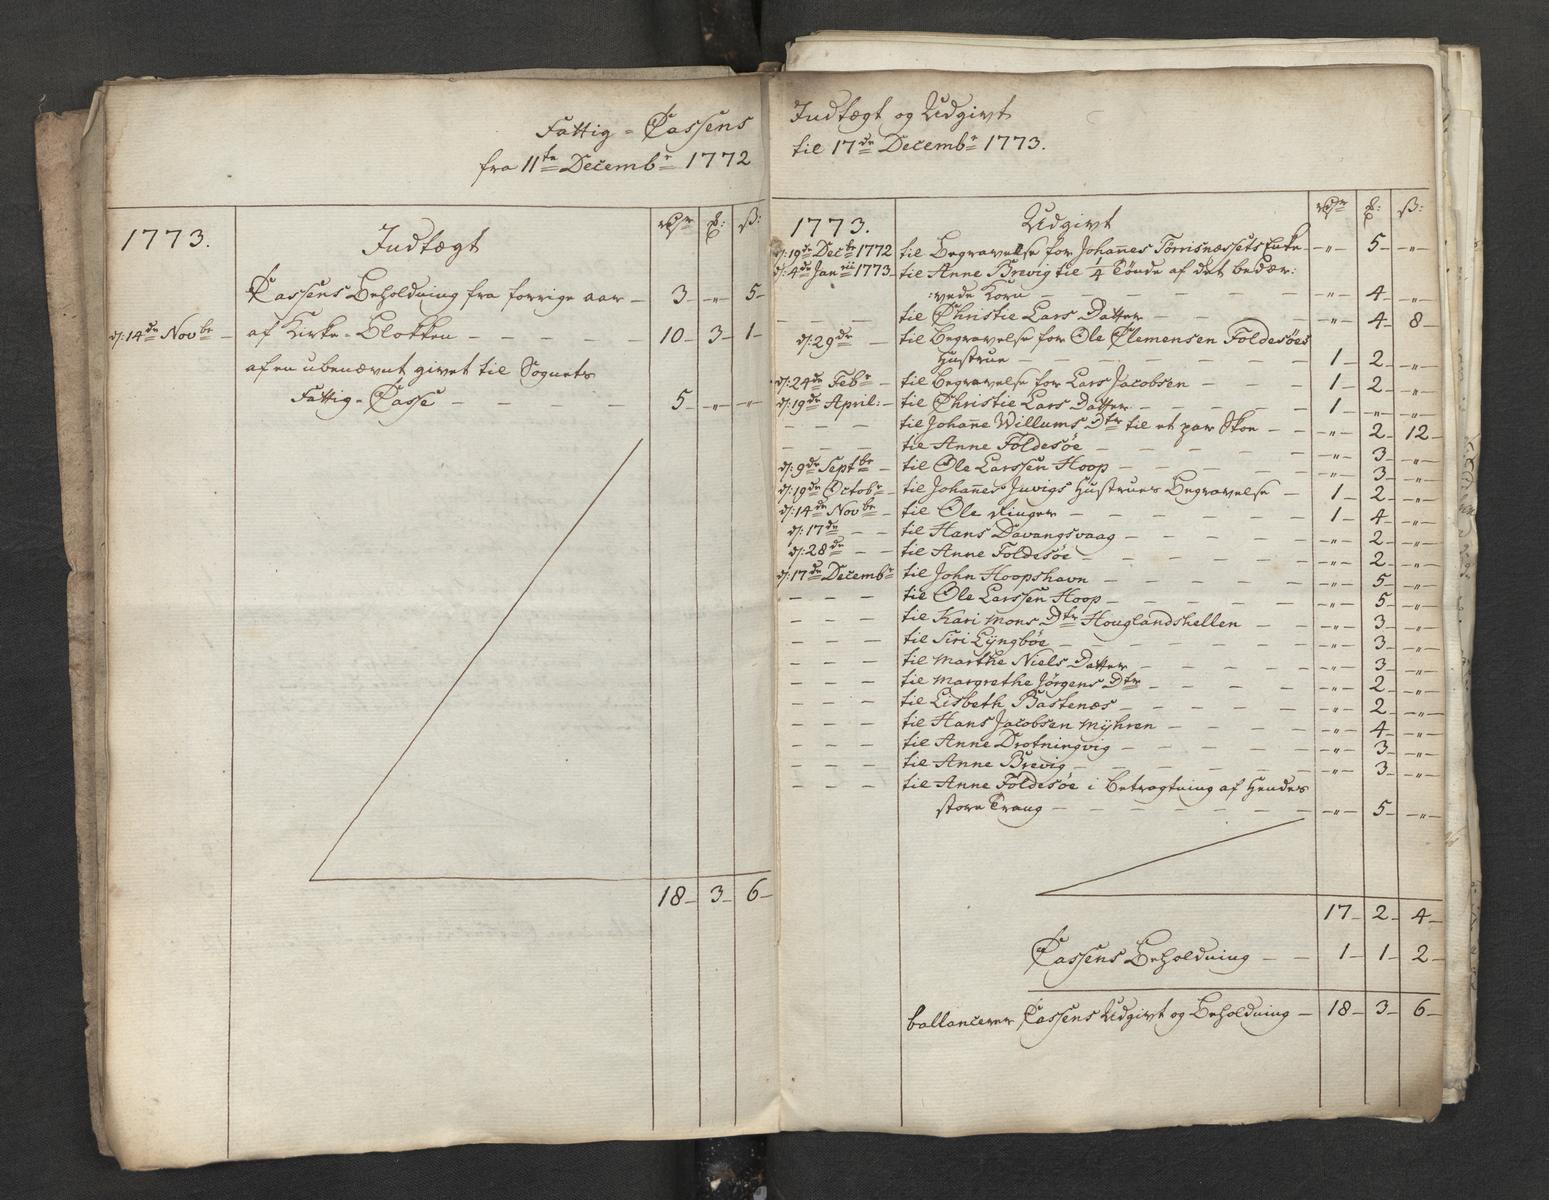 Fattig-Cassens
fra 11te Decembr 1772
1773. Indtægt rdr ß:
Cassens Beholdning fra forrige aar 3 - " - 5
d: 14de Novbr af Kirke-Blokken 10 - 3 - 1
af en ubenævnt givet til Sognets
Fattig-Casse 5 - " - "
18 - 3 - 6
Indtægt og Udgivt
til 17de Decembr 1773.
1773. Udgivt rdr ß:
d: 19de Decbr 1772 til Begravelse for Johannes Torrisnæssets Enke - " - 5 - "
d: 4de Janrii 1773 til Anne Brevig til 1/4 Tönde af det bedær:
:vede Korn - " - 4 - "
til Christie Lars Datter - " - 4 - 8
d: 29de til Begravelse for Ole Clemensen Foldesöes
Hustrue 1 - 2 - "
d: 24de Febr til Begravelse for Lars Jacobsen 1 - 2 - "
d: 19de April: til Christie Lars Datter 1 - " - "
til Johane Willums Dtr til et par Skoe - " - 2 - 12
til Anne Foldesöe - " - 3 - "
d: 9de Septbr til Ole Larssen Hoop - " - 3 - "
d: 19de Octobr til Johannes Juvigs Hustrues Begravelse 1 - 2 - "
d: 14de Novbr til Ole Ringer 1 - 4 - "
d: 17de til Hans Davangsvaag - " - 2 - "
d: 28de til Anne Foldesöe - " - 2 - "
d: 17de Decembr til John Hoopshavn - " - 5 - "
til Ole Larssen Hoop - " - 5 - "
til Kari Mons Dtr Houglandshellen - " - 3 - "
til Siri Lÿngböe - " - 3 - "
til Marthe Niels Datter - " - 3 - "
til Margrethe Jörgens Dtr - " - 2 - "
til Lisbeth Bastenæs - " - 2 - "
til Hans Jacobsen Mÿhren - " - 4 - "
til Anne Drotningvig - " - 3 - "
til Anne Brevig - " - 3 - "
til Anne Foldesöe i Betragtning af Hendes
store Trang - " - 5 - "
17 - 2 - 4
Cassens Beholdning 1 - 1 - 2
ballancerer Cassens Udgivt og Beholdning 18 - 3 - 6